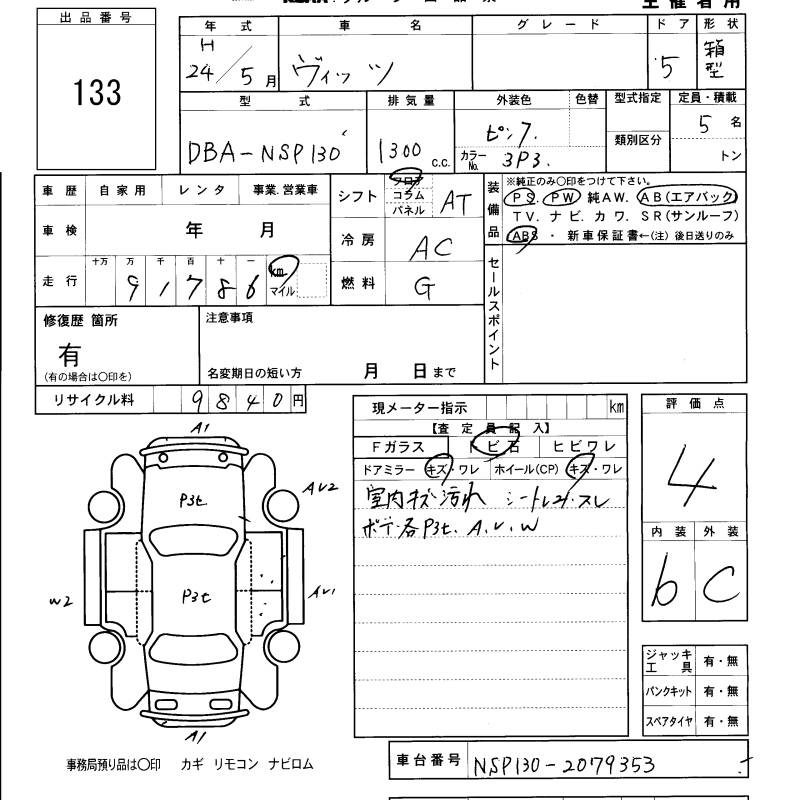 出品番号
133
年式 車名 グレード ドア 形状
H24/5月 ヴィッツ 5 箱型
型式 排気量 外装色 色替 型式指定 定員・積載
DBA-NSP130 1300 c.c. ピンク 類別区分 5名
カラーNo. 3P3 トン
車歴 自家用 レンタ 事業.営業車
車検 年 月
走行 十万 万 千 百 十 一
91786 km マイル
シフト フロア コラム パネル AT
冷房 AC
燃料 G
装備品
※純正のみ○印をつけて下さい。
PS. PW 純AW. AB(エアバック)
TV. ナビ. カワ. SR(サンルーフ)
ABS ・ 新車保証書←(注) 後日送りのみ
セールスポイント
修復歴 箇所
有
(有の場合は○印を)
注意事項
名変期日の短い方 月 日まで
リサイクル料 9840円
現メーター指示 km
【査定員記入】
Fガラス トビ石 ヒビワレ
ドアミラー キズ・ワレ ホイール(CP) キズ・ワレ
室内キズ汚れ シートレコ・スレ
ボデー各P3t. A.V.W
評価点
4
内装 外装
b C
A1
P3t
AV2
W2
P3t
AV1
A1
ジャッキ工具 有・無
パンクキット 有・無
スペアタイヤ 有・無
車台番号 NSP130-2079353
事務局預り品は○印 カギ リモコン ナビロム